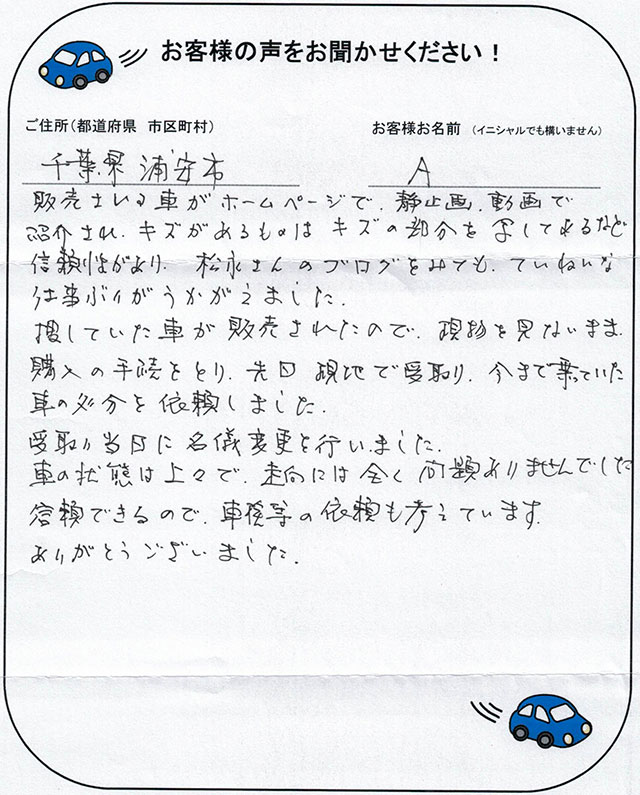 お客様の声をお聞かせください！
ご住所（都道府県 市区町村） お客様お名前 （イニシャルでも構いません）
千葉県 浦安市 A
販売される車がホームページで、静止画、動画で
紹介され、キズがあるものは キズの部分を写してあるなど
信頼性があり、松永さんのブログをみても、ていねいな
仕事ぶりがうかがえました。
捜していた車が販売されたので、現物を見ないまま
購入の手続をとり、先日 現地で受取り、今まで乗っていた
車の処分を依頼しました。
受取り当日に名儀変更を行いました。
車の状態は上々で、走向には全く問題ありませんでした
信頼できるので、車検等の依頼も考えています。
ありがとうございました。